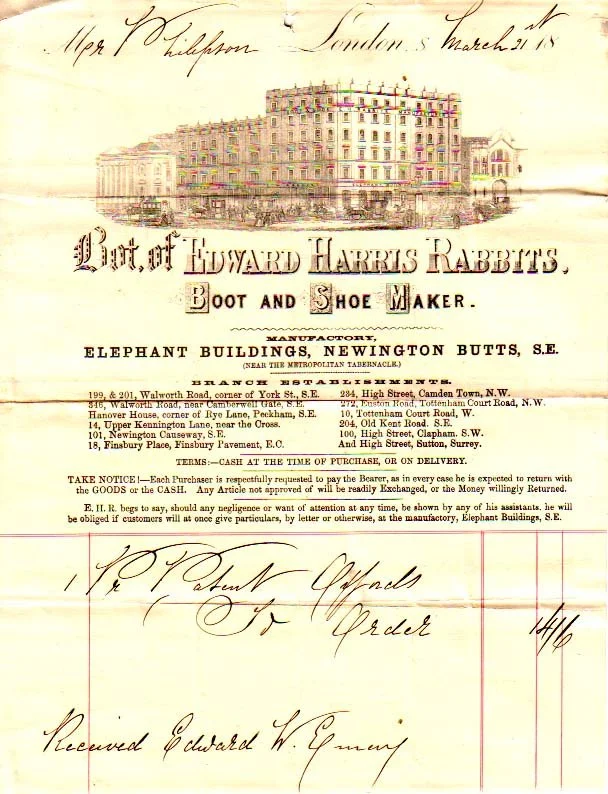 Mr Philipson London, S March 21st 18
Bot. of EDWARD HARRIS RABBITS,
BOOT AND SHOE MAKER.
MANUFACTORY,
ELEPHANT BUILDINGS, NEWINGTON BUTTS, S.E.
(NEAR THE METROPOLITAN TABERNACLE.)
BRANCH ESTABLISHMENTS.
199, & 201, Walworth Road, corner of York St., S.E. 234, High Street, Camden Town, N.W.
346, Walworth Road, near Camberwell Gate, S.E. 272, Euston Road, Tottenham Court Road, N.W.
Hanover House, corner of Rye Lane, Peckham, S.E. 10, Tottenham Court Road, W.
14, Upper Kennington Lane, near the Cross. 204, Old Kent Road. S.E.
101, Newington Causeway, S.E. 100, High Street, Clapham. S.W.
18, Finsbury Place, Finsbury Pavement, E.C. And High Street, Sutton, Surrey.
TERMS:—CASH AT THE TIME OF PURCHASE, OR ON DELIVERY.
TAKE NOTICE!—Each Purchaser is respectfully requested to pay the Bearer, as in every case he is expected to return with
the GOODS or the CASH. Any Article not approved of will be readily Exchanged, or the Money willingly Returned.
E. H. R. begs to say, should any negligence or want of attention at any time, be shown by any of his assistants, he will
be obliged if customers will at once give particulars, by letter or otherwise, at the manufactory, Elephant Buildings, S.E.
1 Pr Patent Oxfords
To Order 14/6
Received Edward W.